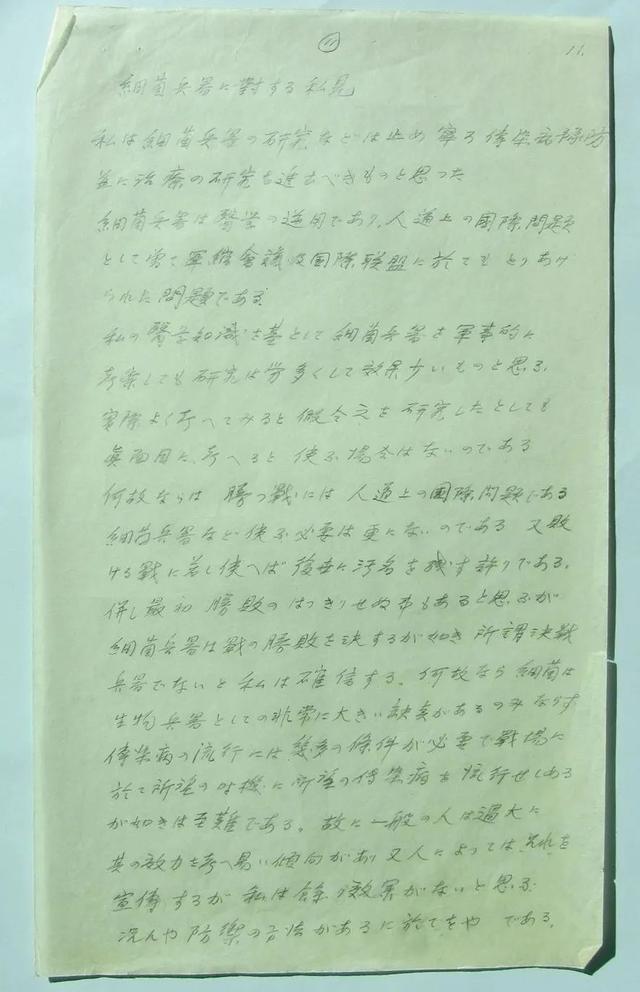 11
11.
細菌兵器に對する私見
私は細菌兵器の研究などは止め寧ろ傳染病豫防
並に治療の研究を進むべきものと思つた
細菌兵器は醫学の逆用であり、人道上の國際問題
として曽て軍縮會議及国際联盟に於てもとりあげ
られた問題である
私の醫学知識を基として細菌兵器を軍事的に
考察しても研究は労多くして效果少いものと思ふ、
實際よく考へてみると假令之を研究したとしても
眞面目に考へると使ふ場合はないのである
何故ならは勝つ戰には人道上の國際問題である
細菌兵器など使ふ必要は更にないのである又敗
ける戰に若し使へば後世に汚名を残す許りである。
併し最初勝敗のはつきりせぬ事もあると思ふが
細菌兵器は戰の勝敗を決するが如き所謂決戰
兵器でないと私は確信する。何故なら細菌は
生物兵器としての非常に大きい缺点があるのみならず
傳染病の流行には幾多の條件が必要で戰場に
於て所望の時機に所望の傳染病を流行せしめる
が如きは至難である。故に一般の人は過大に
其の效力を考へ易い傾向があり又人によつてはそれを
宣傳するが私は余り效果がないと思ふ
况んや防禦の方法があるに於てをやである。